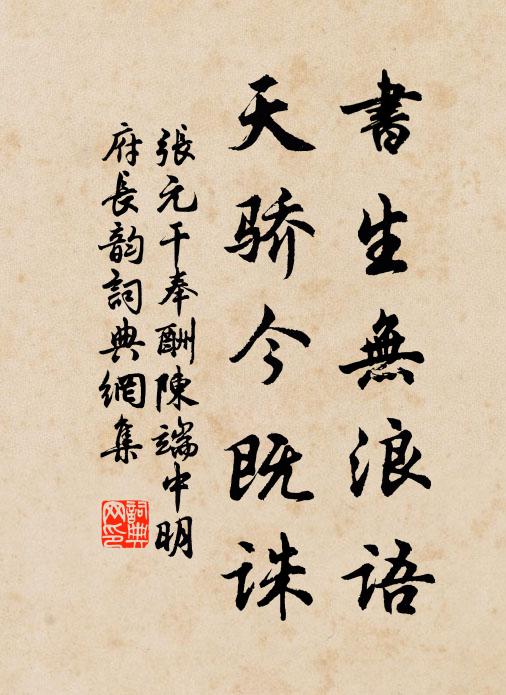 書生無浪語
天骄今既诛
張元干奉酬陳端中明
府長韵詞典網集
詞典
网印